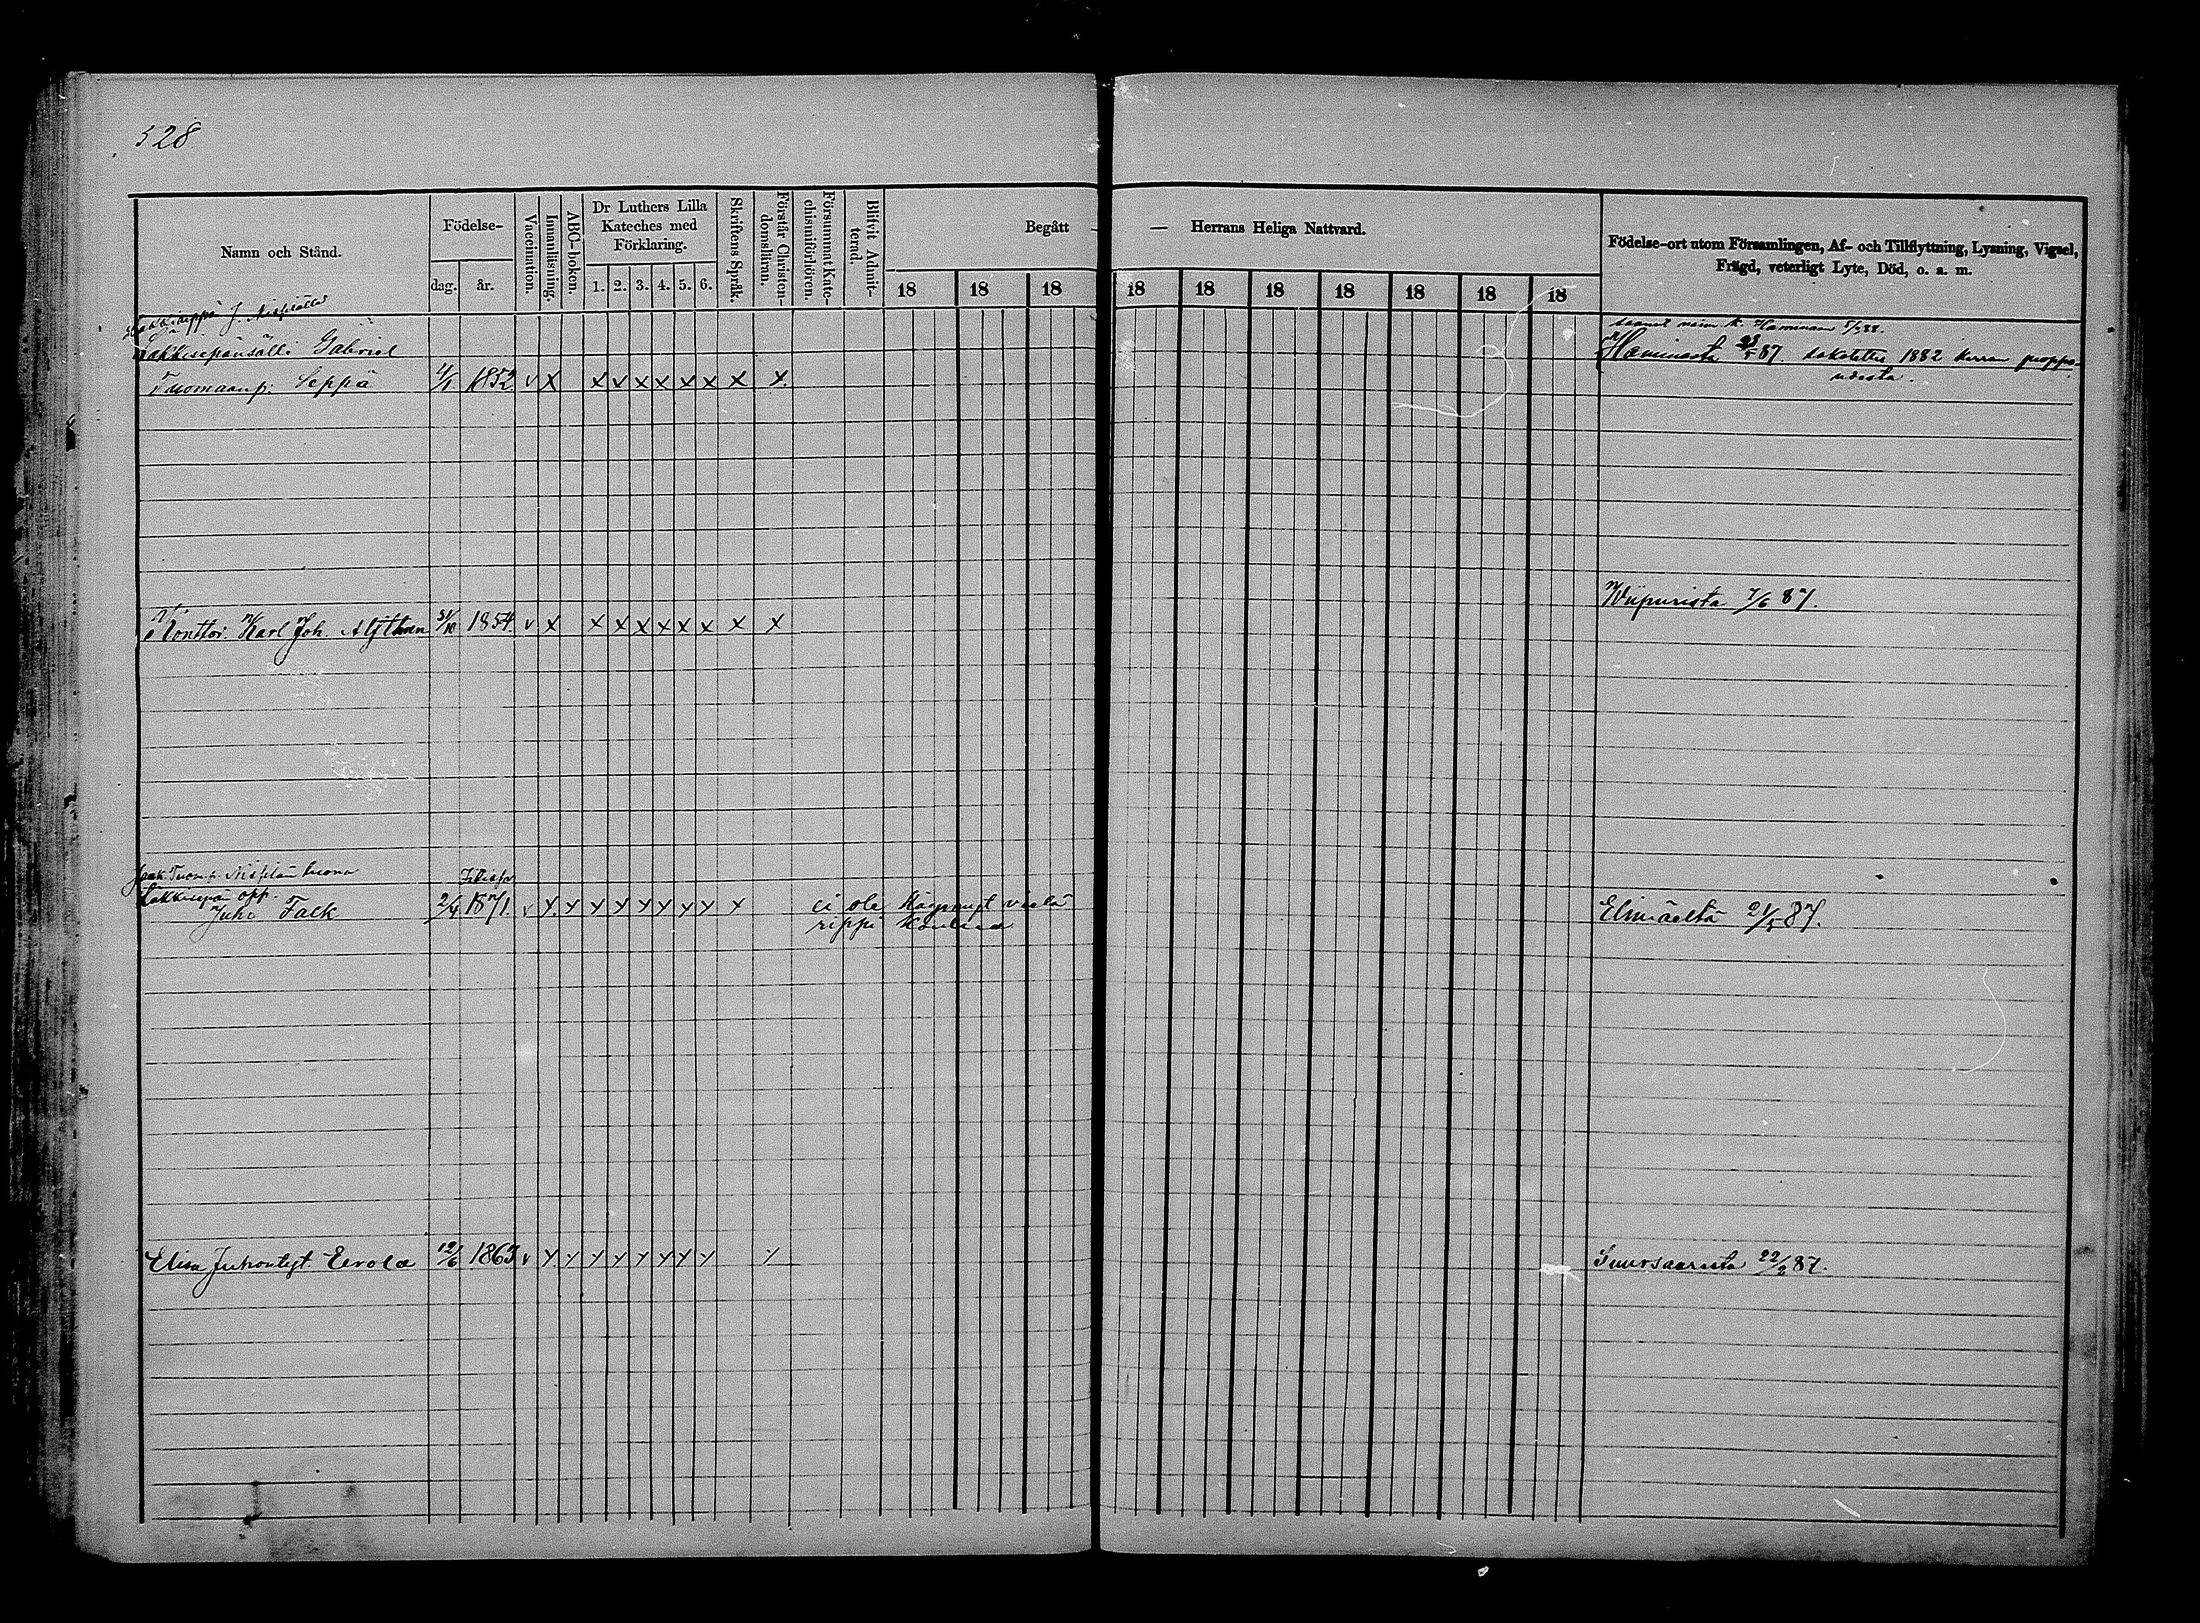 528
Namn och Stånd.
Födelse-
dag. år.
Vaccination.
Innanläsning.
ABC-boken.
Dr Luthers Lilla Kateches med Förklaring.
1. 2. 3. 4. 5. 6.
Skriftens Språk.
Förstår Christendomsläran.
Försummat Katechismiförhören.
Blifvit Admitterad
Begått — — Herrans Heliga Nattvard.
18 18 18 18 18 18 18 18 18 18
Födelse-ort utom Församlingen, Af- och Tillflyttning, Lysning, Vigsel,
Frägd, veterligt Lyte, Död, o. a. m.
Gabriel
Tuomaanp. Seppä 4/1 1852 v x x v x x x x x x.
Haminasta 23/5 87. 1882
Wiipurista 7/6 87.
Konttor. Karl Joh. Alfthan 31/10 1854. v x x x x x x x x x
Juho Falk 2/4 1871. v x x x x x x x x x ei ole
rippi
Elimäeltä 21/5 87.
Elisa Juhontyt. Eerola 12/6 1863 v x x x x x x x x x Suursaaresta 22/2 87.